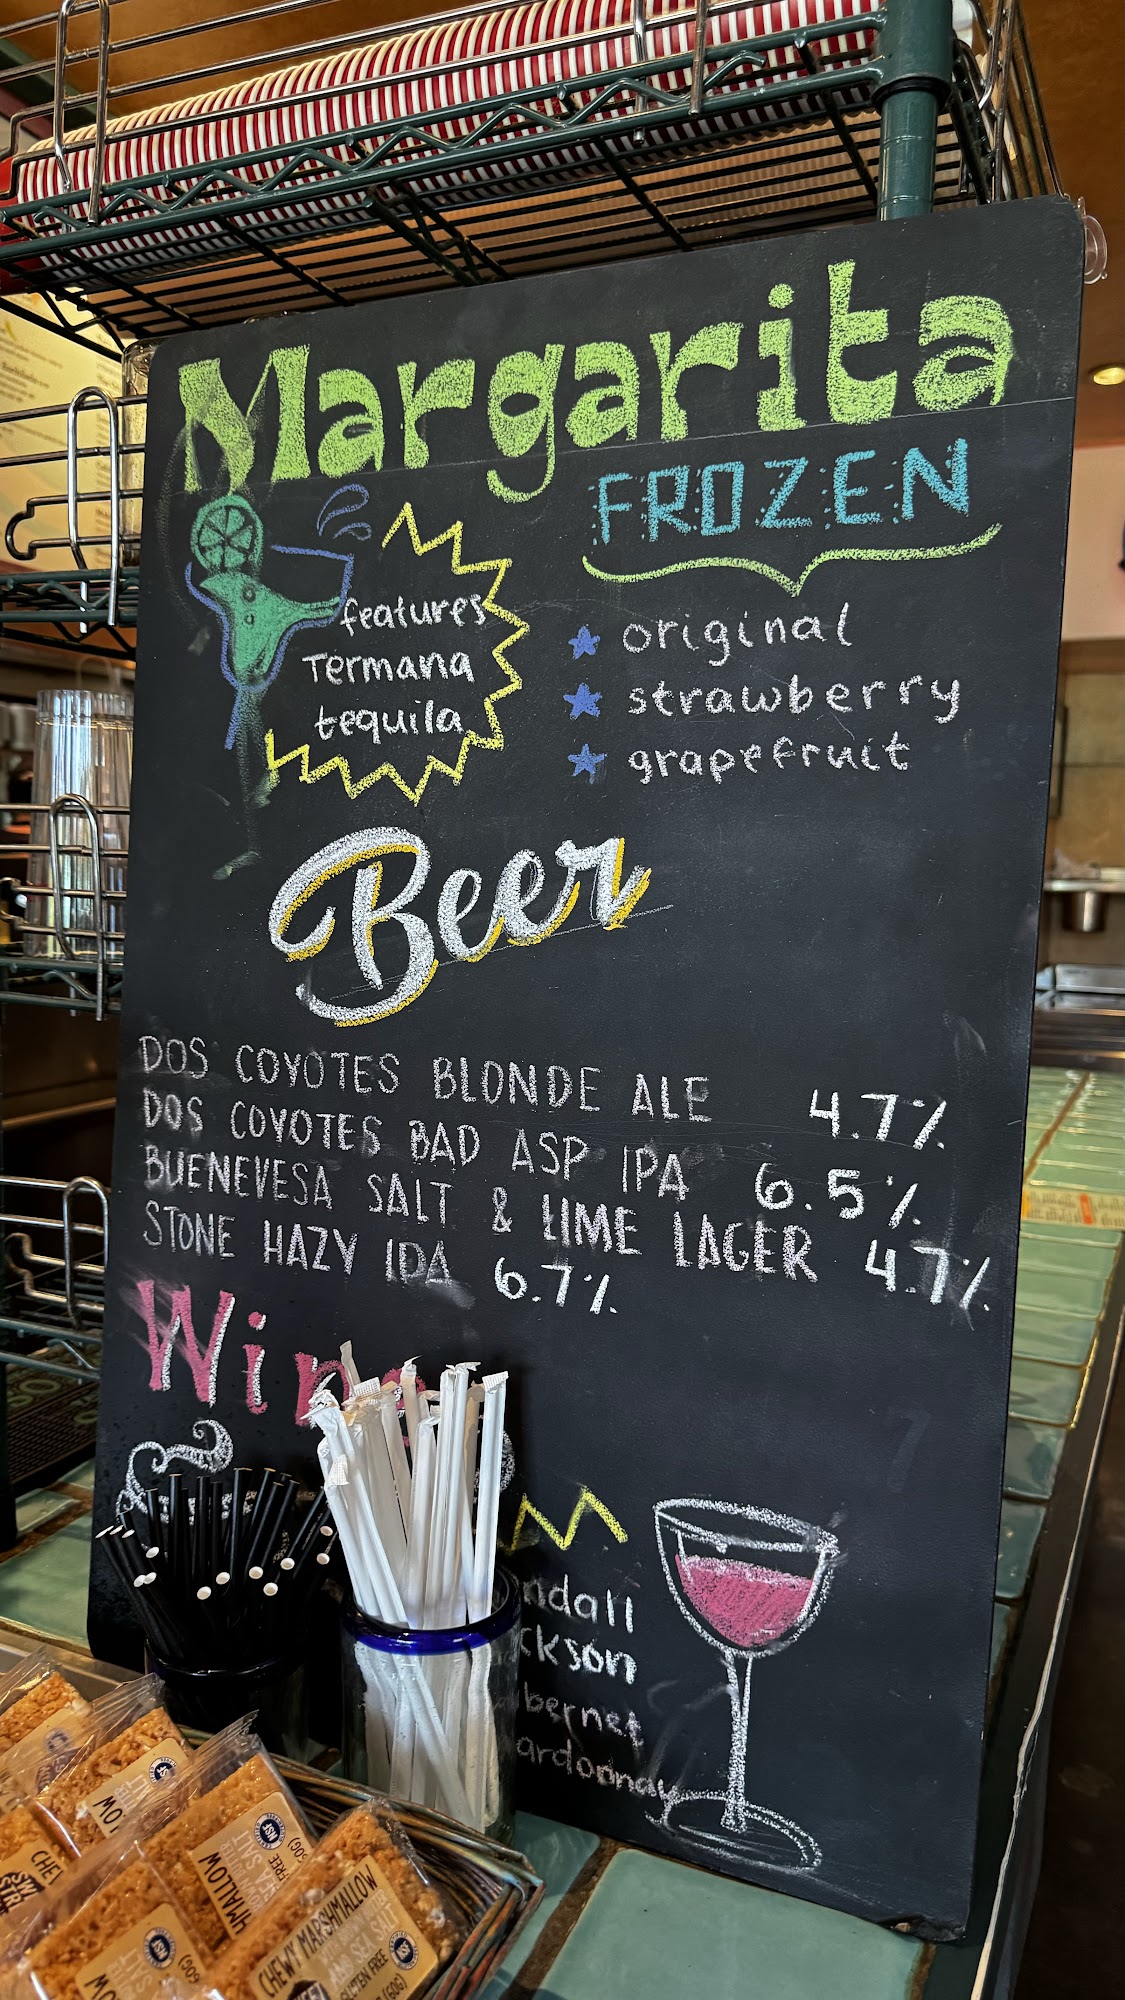 Margarita
FROZEN
features
Termana
tequila
original
strawberry
grapefruit
Beer
DOS COYOTES BLONDE ALE 4.7%
DOS COYOTES BAD ASP IPA 6.5%
BUENEVESA SALT & LIME LAGER 4.7%
STONE HAZY IPA 6.7%
Wine
ndall
ckson
bernet
ardonnay
CHEWY MARSHMALLOW
GLUTEN FREE
(60G)